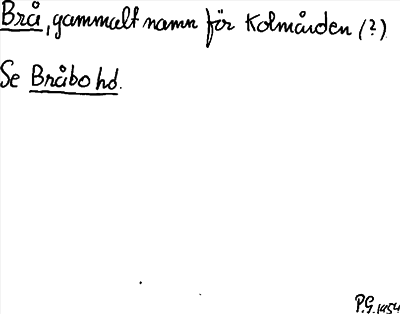 Brå, gammalt namn för Kolmården (?)
Se Bråbo hd.
P.G. 1954